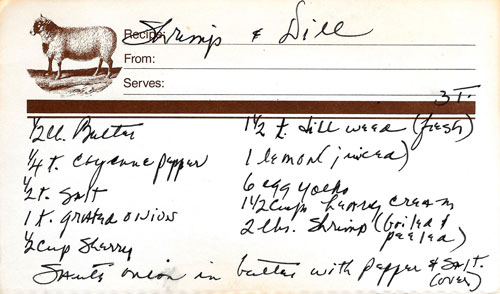 Recipe: Shrimp & Dill
From:
Serves:
3 T.
1/2 lb. Butter
1/4 t. Cayenne Pepper
1/2 t. Salt
1 t. grated onion
1/2 cup Sherry
1 1/2 t. dill weed (fresh)
1 lemon (juiced)
6 egg yolks
1 1/2 cups heavy cream
2 lbs. Shrimp (boiled & peeled)
Saute onion in butter with pepper & salt.
(over)